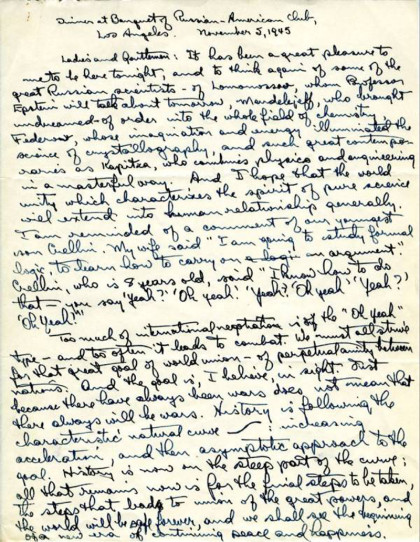 Dinner at Banquet of Russian-American Club,
Los Angeles. November 5, 1945
Ladies and Gentlemen: It has been a great pleasure to
me to be here tonight, and to think again of some of the
great Russian scientists - of Lomonosov, whom Professor
Epstein will talk about tomorrow, Mendelejeff, who brought
undreamed-of order into the whole field of chemistry,
Federow, whose imagination and energy illuminated the
science of crystallography, and such great contempo-
raries as Kapitza, who combines physics and engineering
in a masterful way. And I hope that the world
unity which characterizes the spirit of pure science
will extend into human relationship generally.
I am reminded of a comment of our youngest
son Crellin. My wife said "I am going to study formal
logic, to learn how to carry on a logic an argument"
Crellin, who is 8 years old, said "I know how to do
that - you say 'Yeah?' 'Oh yeah!' 'Yeah?' 'Oh yeah!' 'Yeah?'
'Oh Yeah!'"
Too much of international negotiation is of the "Oh Yeah"
type - and too often it leads to combat. We must all strive
for that great goal of world union - of perpetual amity between
nations. And the goal is, I believe, in sight. Just
because there have always been wars does not mean that
there always will be wars. History is following the
characteristic natural curve : increasing
acceleration, and then asymptotic approach to the
goal. History is now on the steep part of the curve;
all that remains now is for the final steps to be taken,
the steps that lead to union of the great powers, and
the world will be safe forever, and we shall see the beginning
of a new era of continuing peace and happiness.